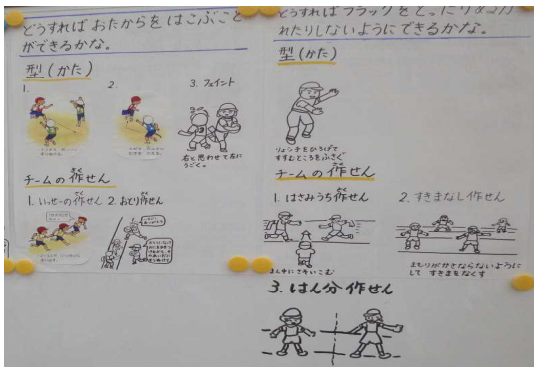 どうすれば おたからを はこぶこと
ができるかな。
型(かた)
1.
2.
3. フェイント
右と思わせて左に
うごく。
チームの作せん
さく
1. いっせーの作せん
2. おとり作せん
どうすればフラッグをとったり
れたりしないようにできるかな。
型(かた)
りょう手をひろげて
すすむところをふさぐ
チームの作せん
さく
1. はさみうち作せん
まん中にさそいこむ
2. すきまなし作せん
まもりがかさならないように
して すきまをなくす
3. はん分作せん